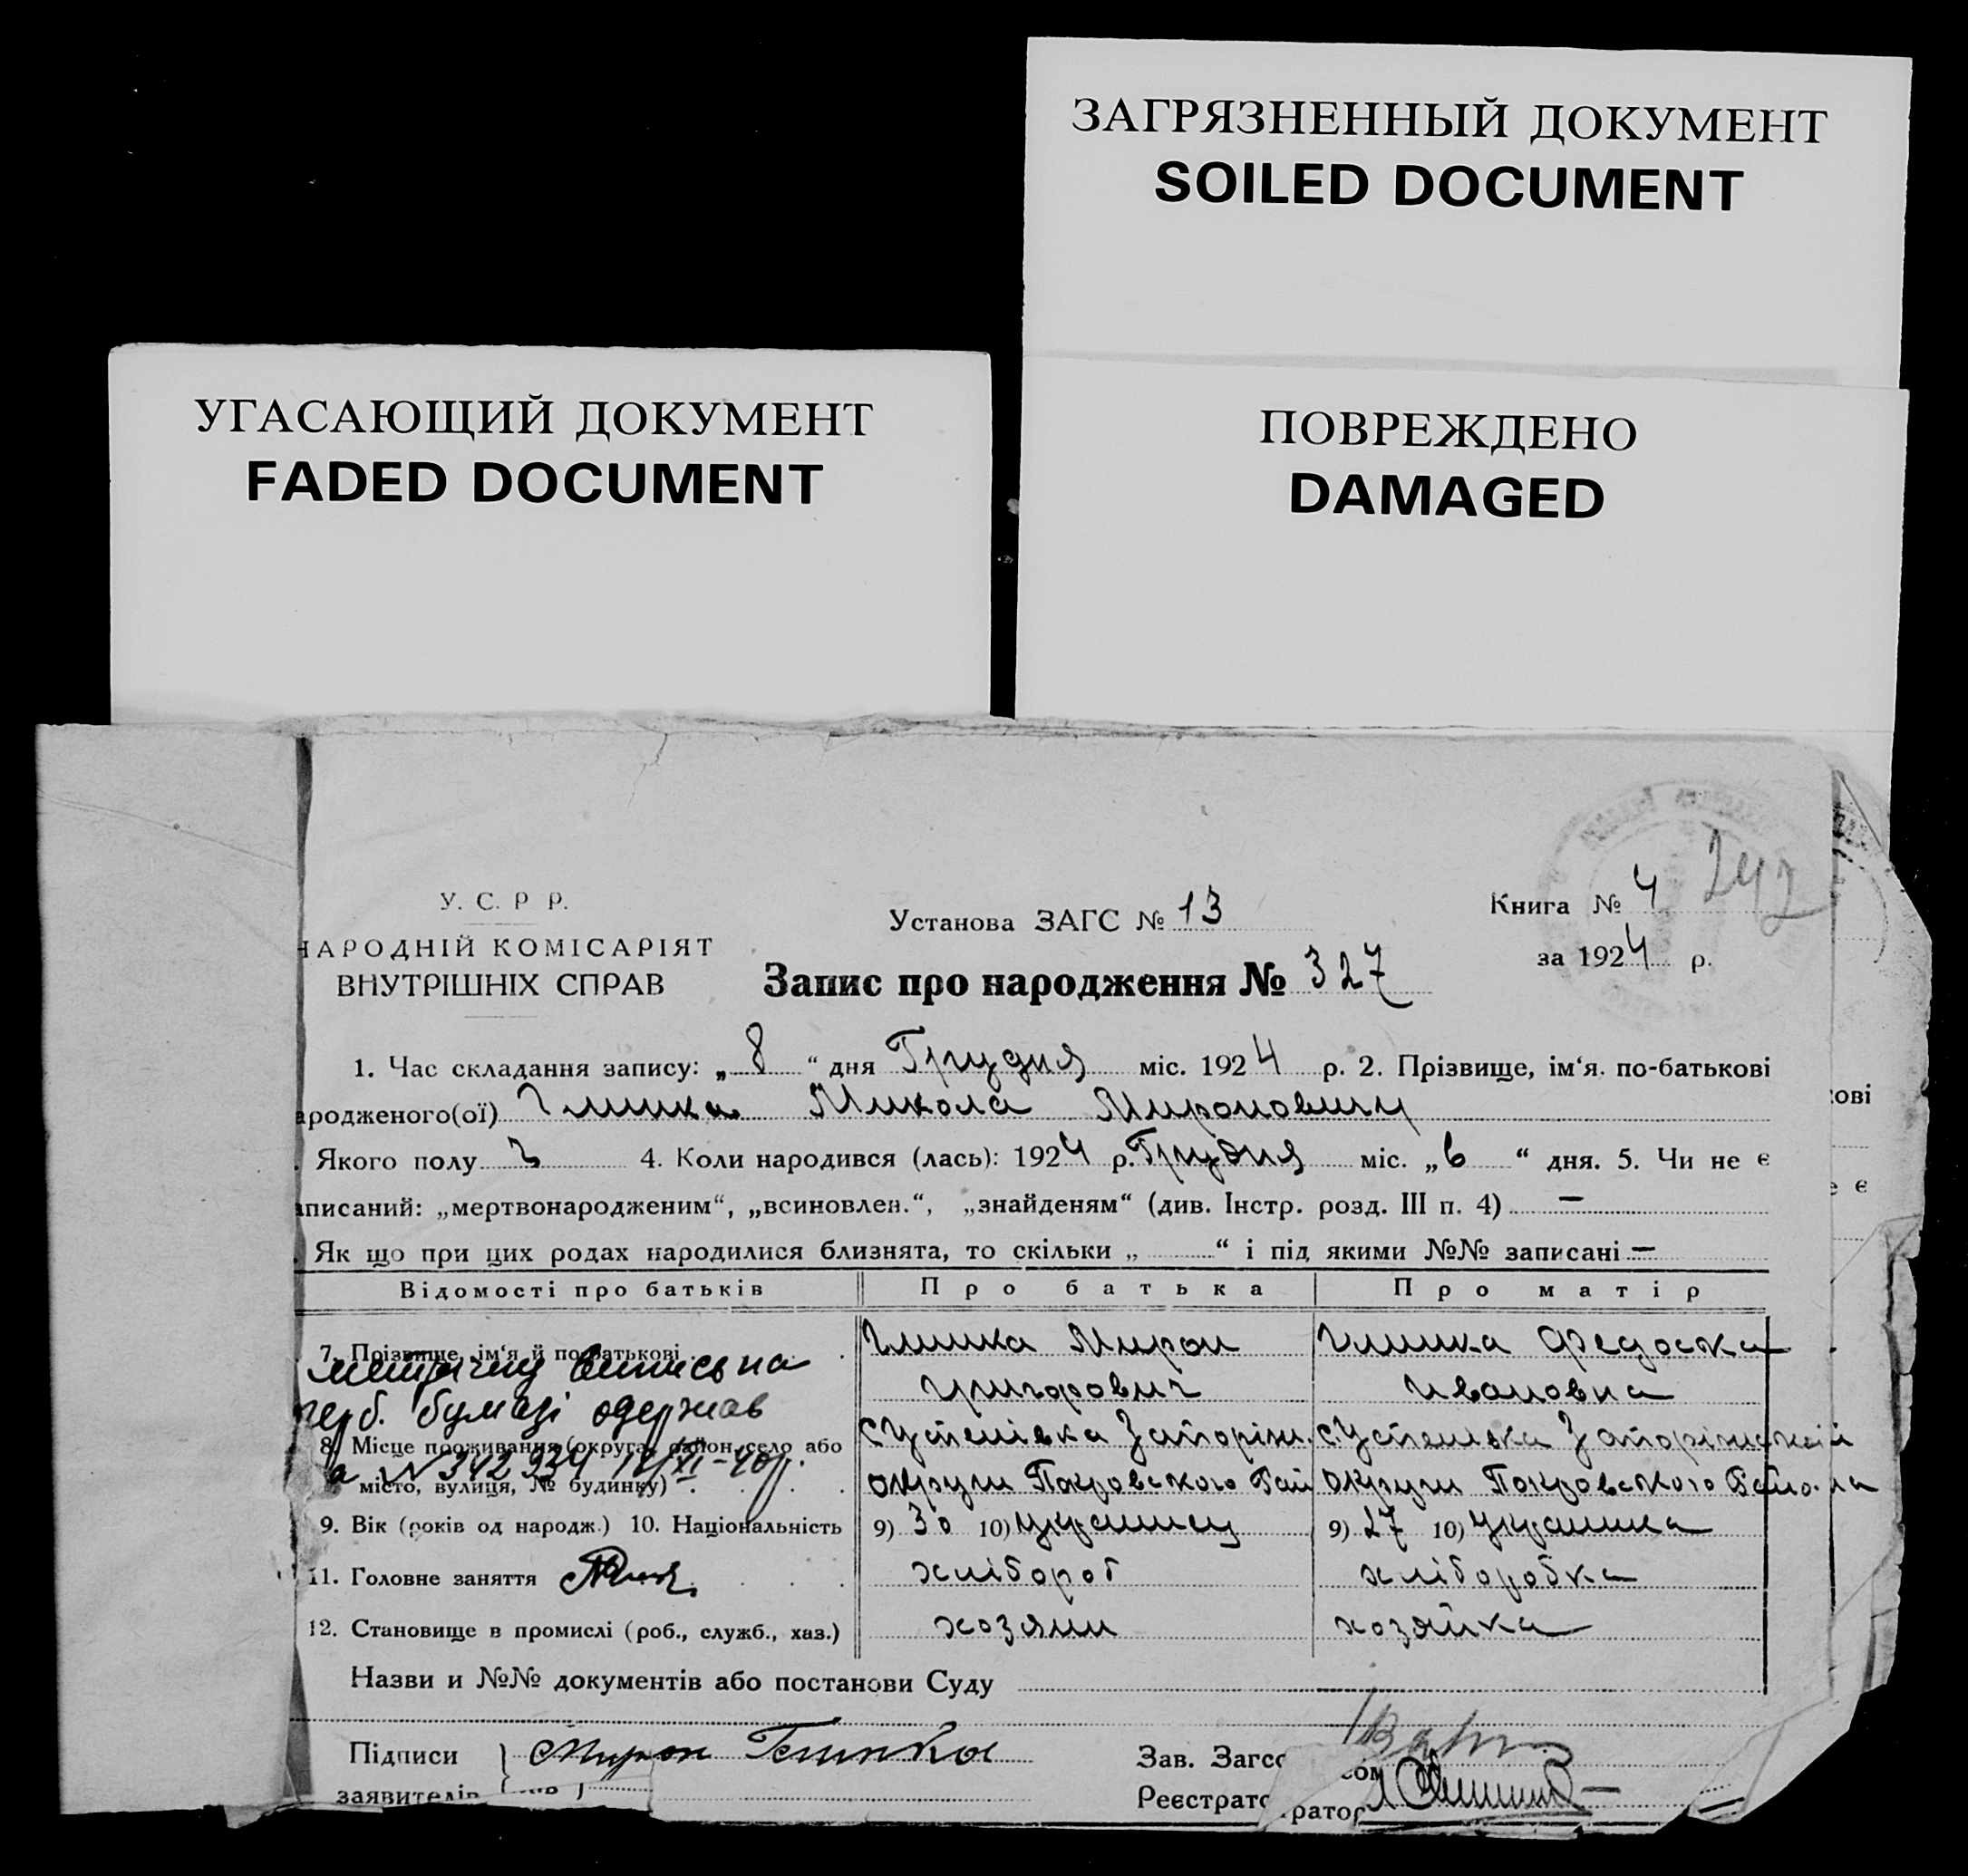 ЗАГРЯЗНЕННЫЙ ДОКУМЕНТ
SOILED DOCUMENT
УГАСАЮЩИЙ ДОКУМЕНТ
FADED DOCUMENT
ПОВРЕЖДЕНО
DAMAGED
У. С. Р Р.
НАРОДНІЙ КОМІСАРІЯТ
ВНУТРІШНІХ СПРАВ
Установа ЗАГС № 13
Запис про народження № 327
Книга № 4
242
за 1924 р.
1. Час складання запису: „ 8 “ дня Грудня міс. 1924 р. 2. Прізвище, ім‘я. по-батькові
ародженого(ої) Глинка Микола Миронович
. Якого полу ч 4. Коли народився (лась): 1924 р. Грудня міс. „ 6 “ дня. 5. Чи не є
аписаний: „мертвонародженим“, „всиновлен.“, „знайденям“ (див. Інстр. розд. III п. 4) —
. Як що при цих родах народилися близнята, то скільки „ “ і під якими №№ записані —
Відомості про батьків Про батька Про матір
7. Прізвище, ім‘я й по-батькові Глинка Мирон Глинка Федоска
метричну випись на
Григорович Ивановна
герб. бумазі одержав
8. Місце проживання (округа, район, село або с Успенівка Запоріж. с. Успенівка Запоріжской
а № 342934 14/XI-40р.
місто, вулиця, № будинку) округи Покровского Рай округи Покровского Району
9. Вік (років од народж.) 10. Національність 9) 30 10) украинец 9) 27 10) украинка
11. Головне заняття хлібороб хлiборобка
12. Становище в промислі (роб., служб., хаз.) хозяин хозяйка
Назви и №№ документів або постанови Суду
Підписи Мирон Глинка Зав. Загсо
сом
заявителів Реєстрато
ратор
ові
е є